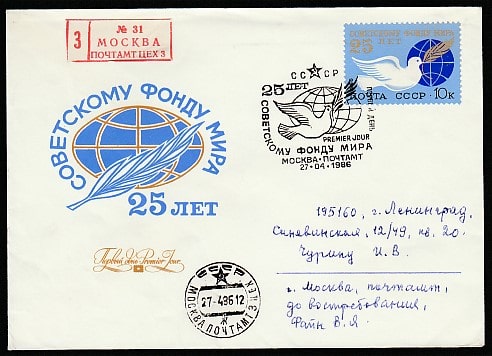 № 31
З МОСКВА
ПОЧТАМТ ЦЕХ 3
СОВЕТСКОМУ ФОНДУ МИРА
25 ЛЕТ
ПОЧТА СССР 10к
СССР
25 ЛЕТ
СОВЕТСКОМУ ФОНДУ МИРА
ПЕРВЫЙ ДЕНЬ
PREMIER JOUR
МОСКВА·ПОЧТАМТ
27·04·1986
СОВЕТСКОМУ ФОНДУ МИРА
25 ЛЕТ
Первый день Premier Jour
СССР
27-4 86 12
МОСКВА ПОЧТАМТ ЦЕХ 3
195160, г. Ленинград,
12/49, кв. 20.
Чурину И. В.
г. Москва, почтамт,
до востребования,
В. Я